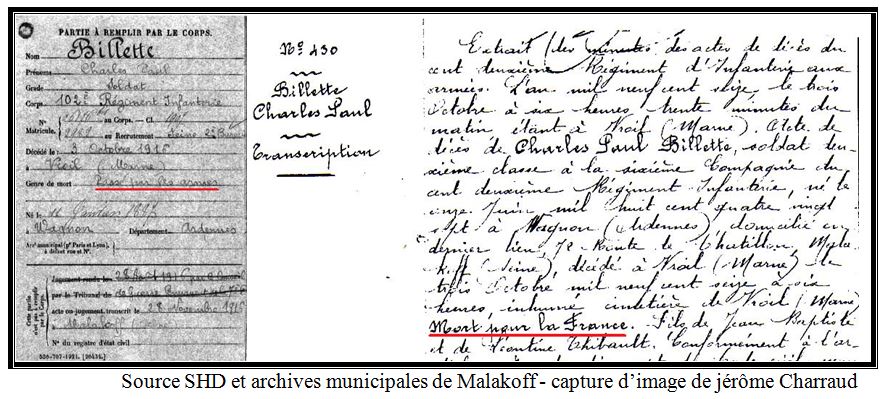 PARTIE À REMPLIR PAR LE CORPS.
Nom Billette
Prénoms Charles Paul
Grade Soldat
Corps 102e Régiment Infanterie
N° au Corps. — Cl.
Matricule. au Recrutement Seine
Décédé le 3 Octobre 1916
à Vroil (Marne)
Genre de mort
Né le
à Wagnon Département Ardennes
Arr¹ municipal (pr Paris et Lyon),
à défaut rue et N°.
Cette partie n'est pas à remplir par le Corps.
Jugement rendu le
par le Tribunal de
acte ou jugement transcrit le 28 Novembre 1916
à Malakoff
N° du registre d'état civil
N° 430
Billette
Charles Paul
Transcription
Extrait des minutes des actes de décès du
cent deuxième Régiment d'Infanterie aux
armées. L'an mil neuf cent seize, le trois
Octobre à six heures trente minutes du
matin étant à Vroil (Marne). Acte de
décès de Charles Paul Billette, soldat deu-
xième classe à la sixième Compagnie du
cent deuxième Régiment Infanterie, né le
onze Juin mil huit cent quatre vingt
sept à Wagnon (Ardennes), domicilié en
dernier lieu, 72 Route de Chatillon, Mala-
koff (Seine), décédé à Vroil (Marne) le
trois Octobre mil neuf cent seize à six
heures, inhumé cimetière de Vroil (Marne)
Mort pour la France. Fils de Jean Baptiste
et de Léontine Thibault. Conformément à l'ar-
Source SHD et archives municipales de Malakoff - capture d'image de jérôme Charraud